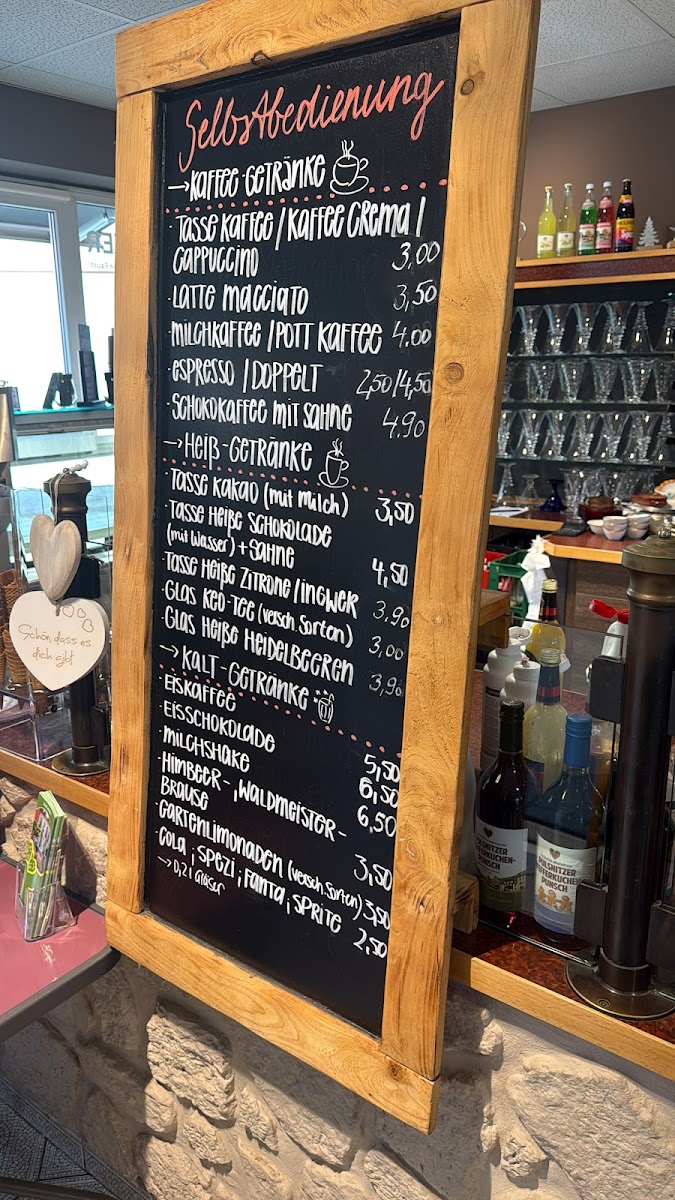 Selbstbedienung
→ Kaffee-Getränke
· Tasse Kaffee / Kaffee Crema /
Cappuccino 3,00
· Latte Macciato 3,50
· Milchkaffee / Pott Kaffee 4,00
· Espresso / Doppelt 2,50/4,50
· Schokokaffee mit Sahne 4,90
→ Heiß-Getränke
· Tasse Kakao (mit Milch) 3,50
· Tasse Heiße Schokolade
(mit Wasser) + Sahne 4,50
· Tasse Heiße Zitrone / Ingwer 3,90
· Glas KEO-Tee (versch. Sorten) 3,00
· Glas Heiße Heidelbeeren 3,90
→ Kalt-Getränke
· Eiskaffee 5,50
· Eisschokolade 6,50
· Milchshake 6,50
· Himbeer-, Waldmeister-
Brause 3,50
· Gartenlimonaden (versch. Sorten) 3,50
· Cola, Spezi, Fanta, Sprite 2,50
→ 0,2 l Gläser
Schön dass es
dich gibt
PULSNITZER
PFEFFERKUCHEN-
PUNSCH
PULSNITZER
PFEFFERKUCHEN
PUNSCH